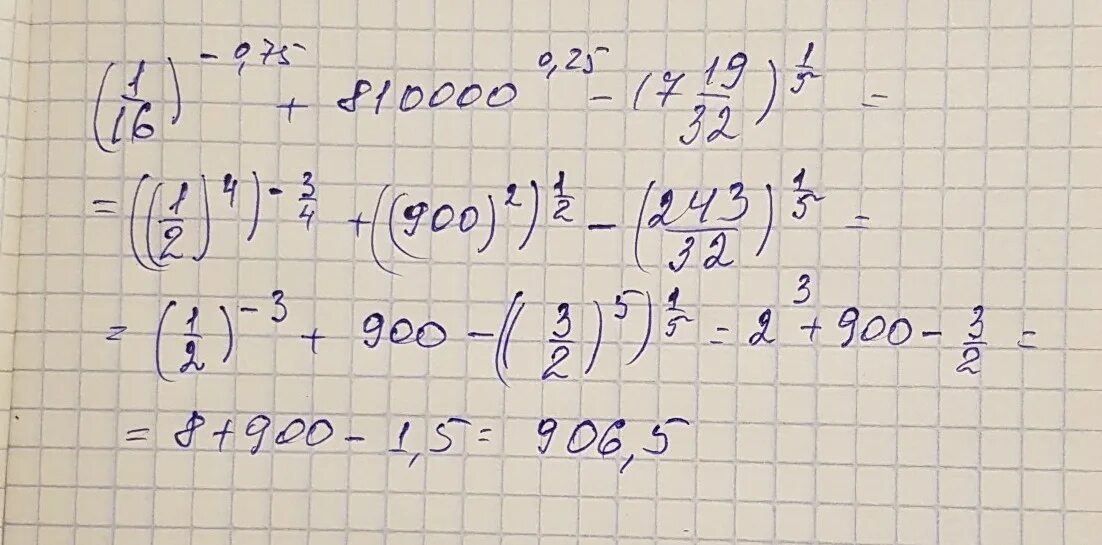 (1/16)^-0,75 + 810000^0,25 - (7 19/32)^1/5 =
= ((1/2)^4)^-3/4 + ((900)^2)^1/2 - (243/32)^1/5 =
= (1/2)^-3 + 900 - ((3/2)^5)^1/5 = 2^3 + 900 - 3/2 =
= 8 + 900 - 1,5 = 906,5